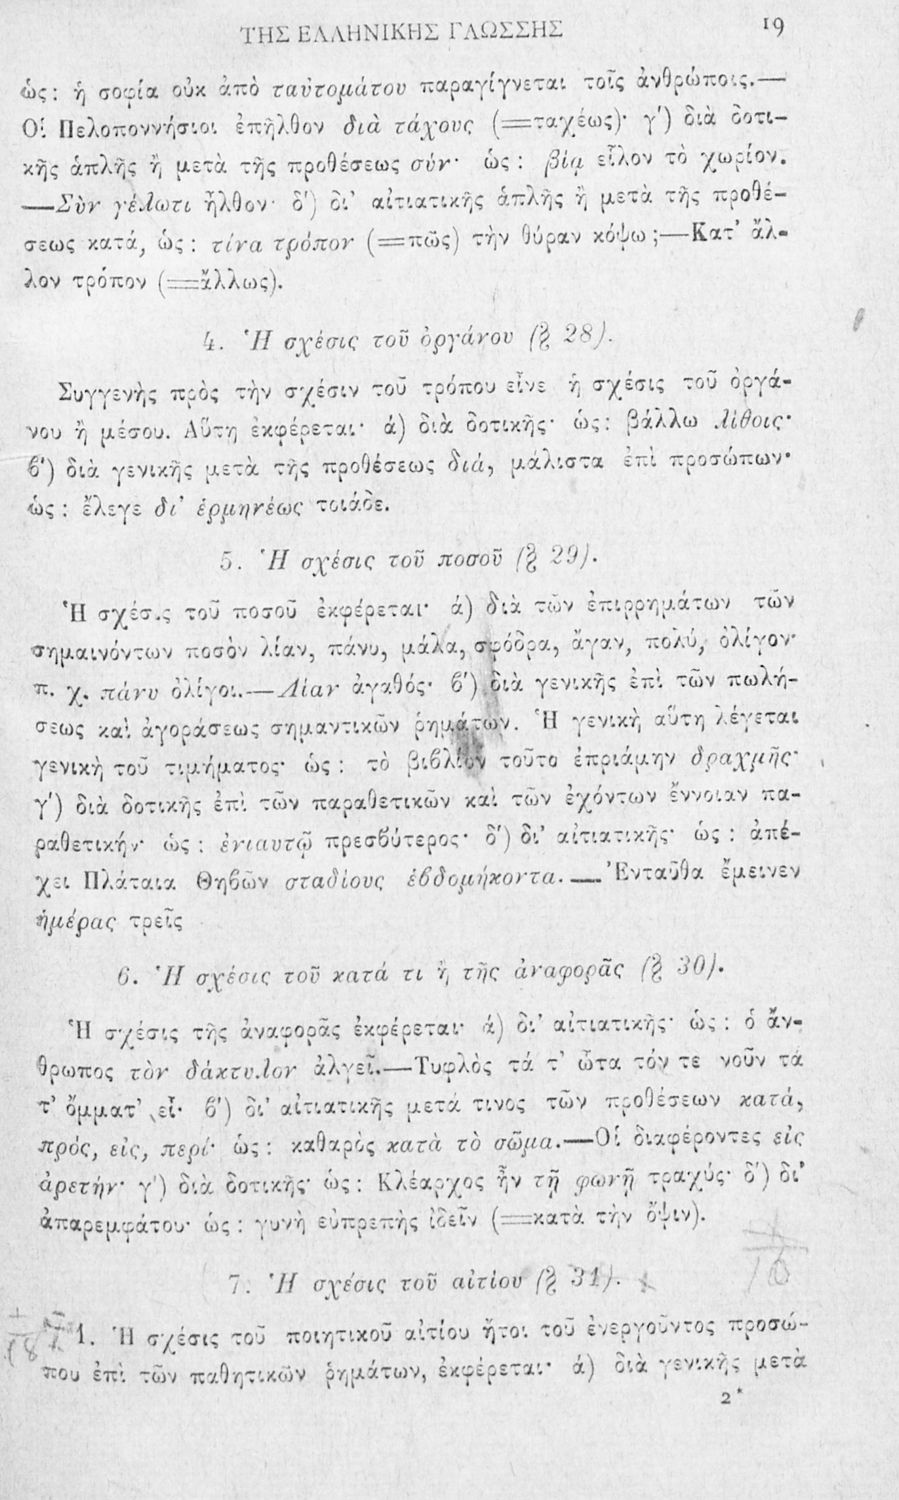 ΤΗΣ ΕΛΛΗΝΙΚΗΣ ΓΛΩΣΣΗΣ 19
ὡς: ἡ σοφία οὐκ ἀπὸ ταὐτομάτου παραγίγνεται τοῖς ἀνθρώποις.—
Οἱ Πελοποννήσιοι ἐπῆλθον διὰ τάχους (=ταχέως)· γ') διὰ δοτι-
κῆς ἁπλῆς ἢ μετὰ τῆς προθέσεως σύν· ὡς: βίᾳ εἷλον τὸ χωρίον.
—Σὺν γέλωτι ἦλθον· δ') δι' αἰτιατικῆς ἁπλῆς ἢ μετὰ τῆς προθέ-
σεως κατά, ὡς: τίνα τρόπον (=πῶς) τὴν θύραν κόψω;—Κατ' ἄλ-
λον τρόπον (=ἄλλως).
4. Ἡ σχέσις τοῦ ὀργάνου (§ 28).
Συγγενὴς πρὸς τὴν σχέσιν τοῦ τρόπου εἶνε ἡ σχέσις τοῦ ὀργά-
νου ἢ μέσου. Αὕτη ἐκφέρεται· ά) διὰ δοτικῆς· ὡς: βάλλω λίθοις·
β') διὰ γενικῆς μετὰ τῆς προθέσεως διά, μάλιστα ἐπὶ προσώπων·
ὡς: ἔλεγε δι' ἑρμηνέως τοιάδε.
5. Ἡ σχέσις τοῦ ποσοῦ (§ 29).
Ἡ σχέσις τοῦ ποσοῦ ἐκφέρεται· ά) διὰ τῶν ἐπιρρημάτων τῶν
σημαινόντων ποσὸν λίαν, πάνυ, μάλα, σφόδρα, ἄγαν, πολύ, ὀλίγον·
π. χ. πάνυ ὀλίγοι.—Λίαν ἀγαθός· β') διὰ γενικῆς ἐπὶ τῶν πωλή-
σεως καὶ ἀγοράσεως σημαντικῶν ῥημάτων. Ἡ γενικὴ αὕτη λέγεται
γενικὴ τοῦ τιμήματος· ὡς: τὸ βιβλίον τοῦτο ἐπριάμην δραχμῆς·
γ') διὰ δοτικῆς ἐπὶ τῶν παραθετικῶν καὶ τῶν ἐχόντων ἔννοιαν πα-
ραθετικήν· ὡς: ἐνιαυτῷ πρεσβύτερος· δ') δι' αἰτιατικῆς· ὡς: ἀπέ-
χει Πλάταια Θηβῶν σταδίους ἑβδομήκοντα.—Ἐνταῦθα ἔμεινεν
ἡμέρας τρεῖς
6. Ἡ σχέσις τοῦ κατά τι ἢ τῆς ἀναφορᾶς (§ 30).
Ἡ σχέσις τῆς ἀναφορᾶς ἐκφέρεται· ά) δι' αἰτιατικῆς· ὡς: ὁ ἄν-
θρωπος τὸν δάκτυλον ἀλγεῖ.—Τυφλὸς τά τ' ὦτα τόν τε νοῦν τά
τ' ὄμματ' εἶ· β') δι' αἰτιατικῆς μετά τινος τῶν προθέσεων κατά,
πρός, εἰς, περί· ὡς: καθαρὸς κατὰ τὸ σῶμα.—Οἱ διαφέροντες εἰς
ἀρετήν· γ') διὰ δοτικῆς· ὡς: Κλέαρχος ἦν τῇ φωνῇ τραχύς· δ') δι'
ἀπαρεμφάτου· ὡς: γυνὴ εὐπρεπὴς ἰδεῖν (=κατὰ τὴν ὄψιν).
7. Ἡ σχέσις τοῦ αἰτίου (§ 31).
1. Ἡ σχέσις τοῦ ποιητικοῦ αἰτίου ἤτοι τοῦ ἐνεργοῦντος προσώ-
που ἐπὶ τῶν παθητικῶν ῥημάτων, ἐκφέρεται· ά) διὰ γενικῆς μετὰ
2*